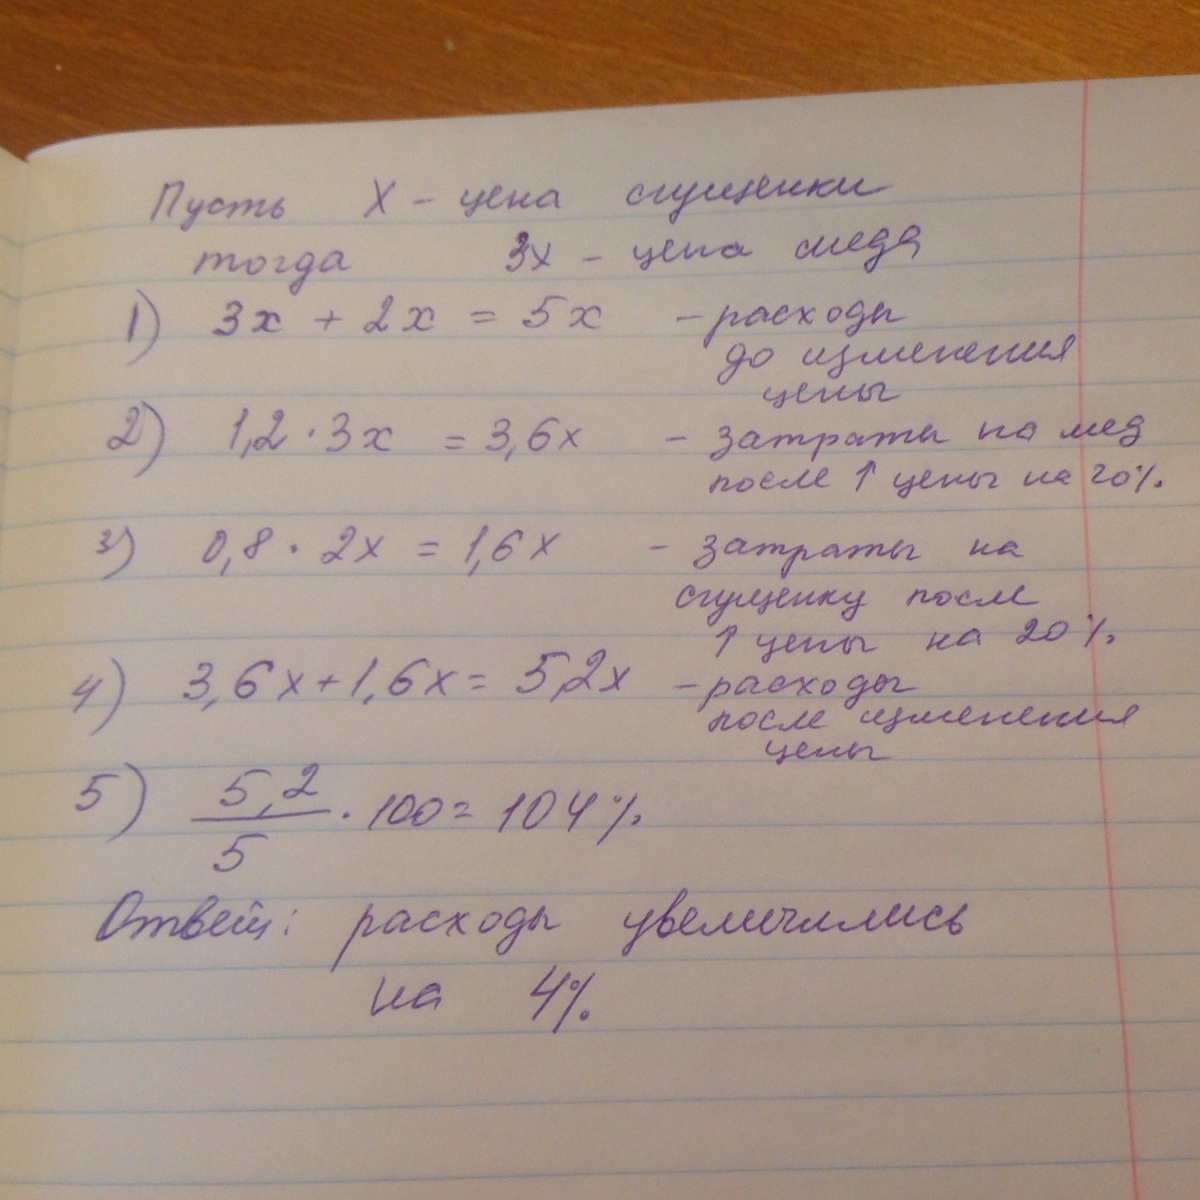 Пусть X – цена сгущенки
тогда 3x – цена меда
1) 3x + 2x = 5x – расходы
до изменения
цены
2) 1,2 · 3x = 3,6x – затраты на мед
после ↑ цены на 20%.
3) 0,8 · 2x = 1,6x – затраты на
сгущенку после
↑ цены на 20%.
4) 3,6x + 1,6x = 5,2x – расходы
после изменения
цены
5) 5,2/5 · 100 = 104%.
Ответ: расходы увеличились
на 4%.